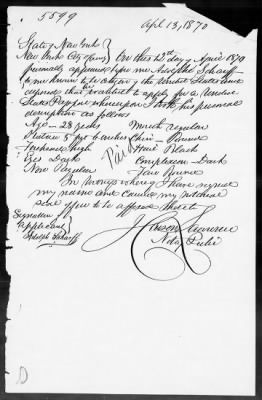 5599
April 13, 1870
State of New York
New York City & County } On this 12th day of April 1870
personally appeared before me Adolphe Scharff
to me known to be citizen of the United States and
deposes that he intends to apply for a
States Passport whereupon I took his personal
description as follows
Age - 28 years Mouth regular
Stature 5 feet inches Chin - Round
Forehead high Hair Black
Eyes Dark Complexion - Dark
Nose Regular Face Round
Paid
In Testimony whereof I have signed
my name and caused my Notarial
seal to be affixed
Signature
applicant
Adolph Scharff
Notary Public